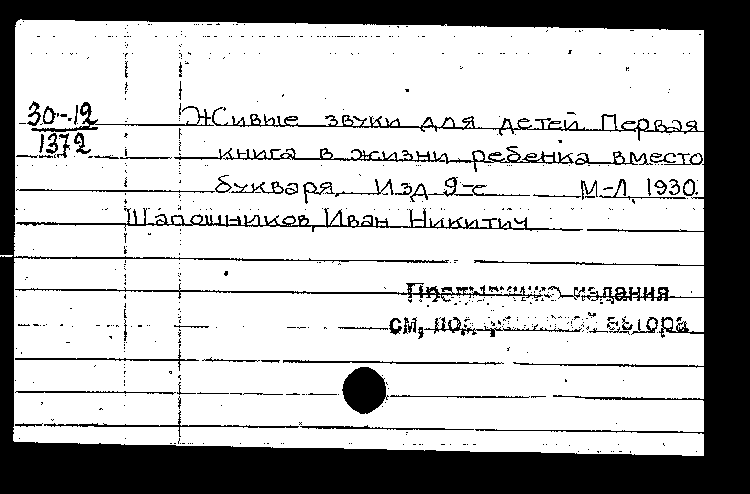 30-12
1372
Живые звуки для детей Первая
книга в жизни ребенка вместо
букваря. Изд 9-е М-Л, 1930.
Шапошников, Иван Никитич
издания
см, под автора